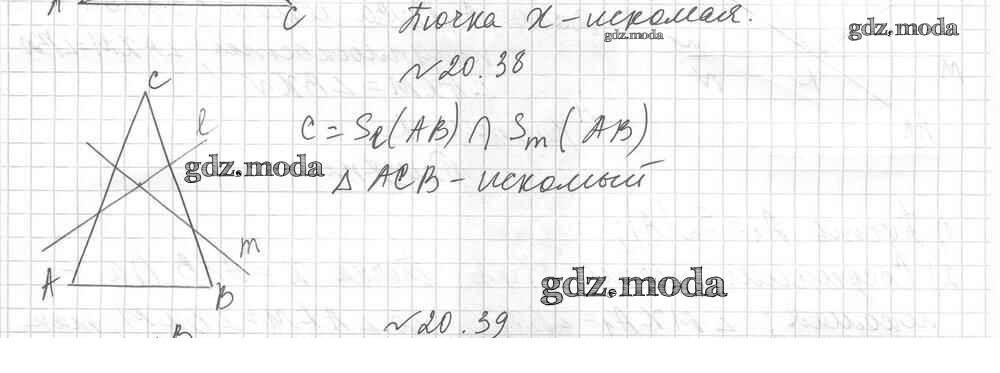 A C Точка X – искомая.
gdz.moda
gdz.moda
№ 20.38
C
l
C = Sℓ(AB) ∩ Sm(AB)
gdz.moda
△ ACB – искомый
m
A
B
gdz.moda
№ 20.39
B